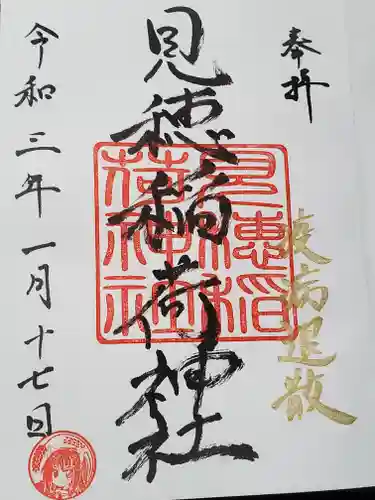 奉拝
疫病退散
見穂稲荷神社
見穂稲
荷神社
令和三年一月十七日